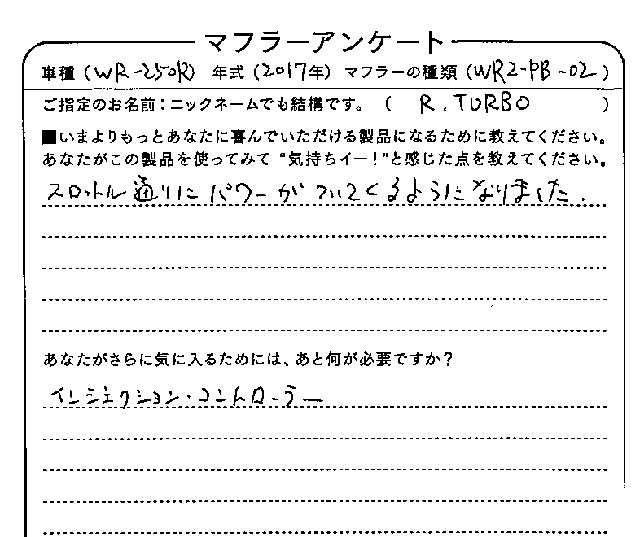 マフラーアンケート
車種（WR-250R） 年式（2017年） マフラーの種類（WR2-PB-02）
ご指定のお名前：ニックネームでも結構です。（ R.TURBO ）
■いまよりもっとあなたに喜んでいただける製品になるために教えてください。
あなたがこの製品を使ってみて“気持ちイー！”と感じた点を教えてください。
スロットル通りにパワーがついてくるようになりました.
あなたがさらに気に入るためには、あと何が必要ですか？
インジェクション・コントローラー